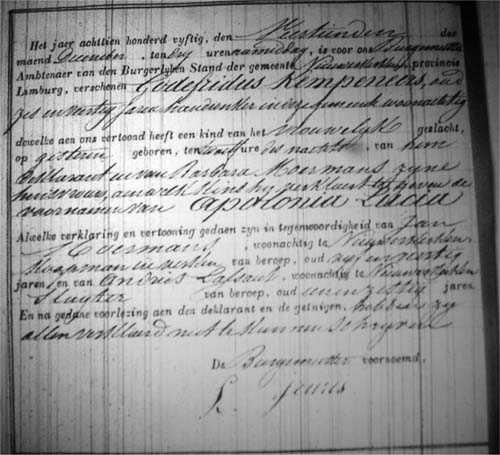 Het jaer achttien honderd vyftig, den Veertienden des
maend December, ten dry uren namiddag, is voor ons Burgemeester
Ambtenaer van den Burgerlyken Stand der gemeente Nieuwerkerken, provincie
Limburg, verschenen Godefridus Kempeneers, oud
zes en dertig jaren Handwerker in deze gemeente woonachtig
dewelke aen ons vertoond heeft een kind van het vrouwelyk geslacht,
op gisteren geboren, ten twaalf ure des nachts, van hem
deklarant en van Barbara Moermans zyne
huisvrouw, aen welk kind hy verklaert te geven de
voornamen van Apolonia Lucia
Alwelke verklaring en vertooning gedaen zyn in tegenwoordigheid van Jan
Moermans, woonachtig te Nieuwerkerken
Koopman van beroep, oud
jaren en van Andries Lassaut, woonachtig te Nieuwerkerken
Sluyter van beroep, oud een en zestig jaren
En na gedane voorlezing aen den deklarant en de getuigen, hebben zy
allen verklaerd niet te kunnen schryven
De Burgemeester voornoemd,
L. Jeuris